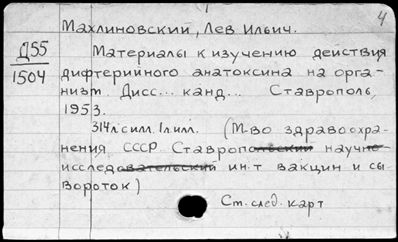 4
Махлиновский, Лев Ильич.
Д55
1504
Материалы к изучению действия
дифтерийного анатоксина на орга-
низм Дисс... канд... Ставрополь,
1953.
314л с илл. 1л.илл. (М-во здравоохра-
нения СССР Ставропольский научно-
исследовательский ин.т вакцин и сы
вороток)
См. след. карт